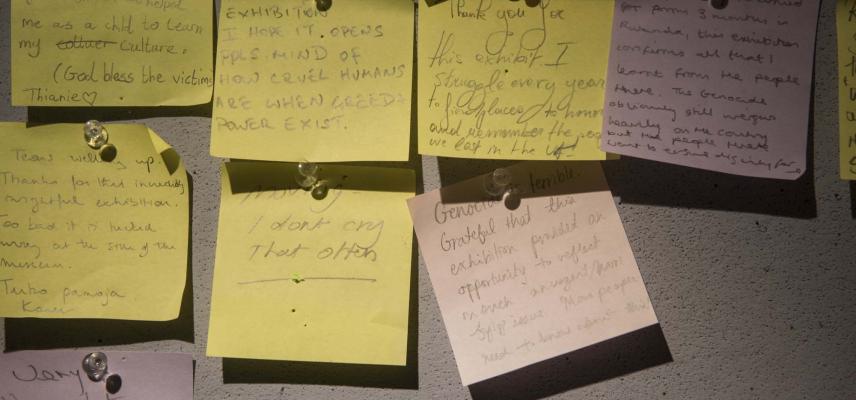 me as a child to learn
my culture.
(God bless the victims
Thianie♡
EXHIBITION
I HOPE IT OPENS
PPLS MIND OF
HOW CRUEL HUMANS
ARE WHEN GREED &
POWER EXIST.
Thank you for
this exhibit I
struggle every year
to find places to honor
and remember the
we lost in the
for 3 months in
Rwanda, this exhibition
confirms all that I
learnt from the people
there. The Genocide
obviously still weighs
heavily on the country
but the people there
want to ensure dignity for
Tears welling up
Thanks for that incredibly
insightful exhibition.
Too bad it is tucked
away at the side of the
museum.
Tuko pamoja
Moving -
I dont cry
That often
Genocide is terrible.
Grateful that this
exhibition provided an
opportunity to reflect
on such an
issue. More people
need to know about this
Very